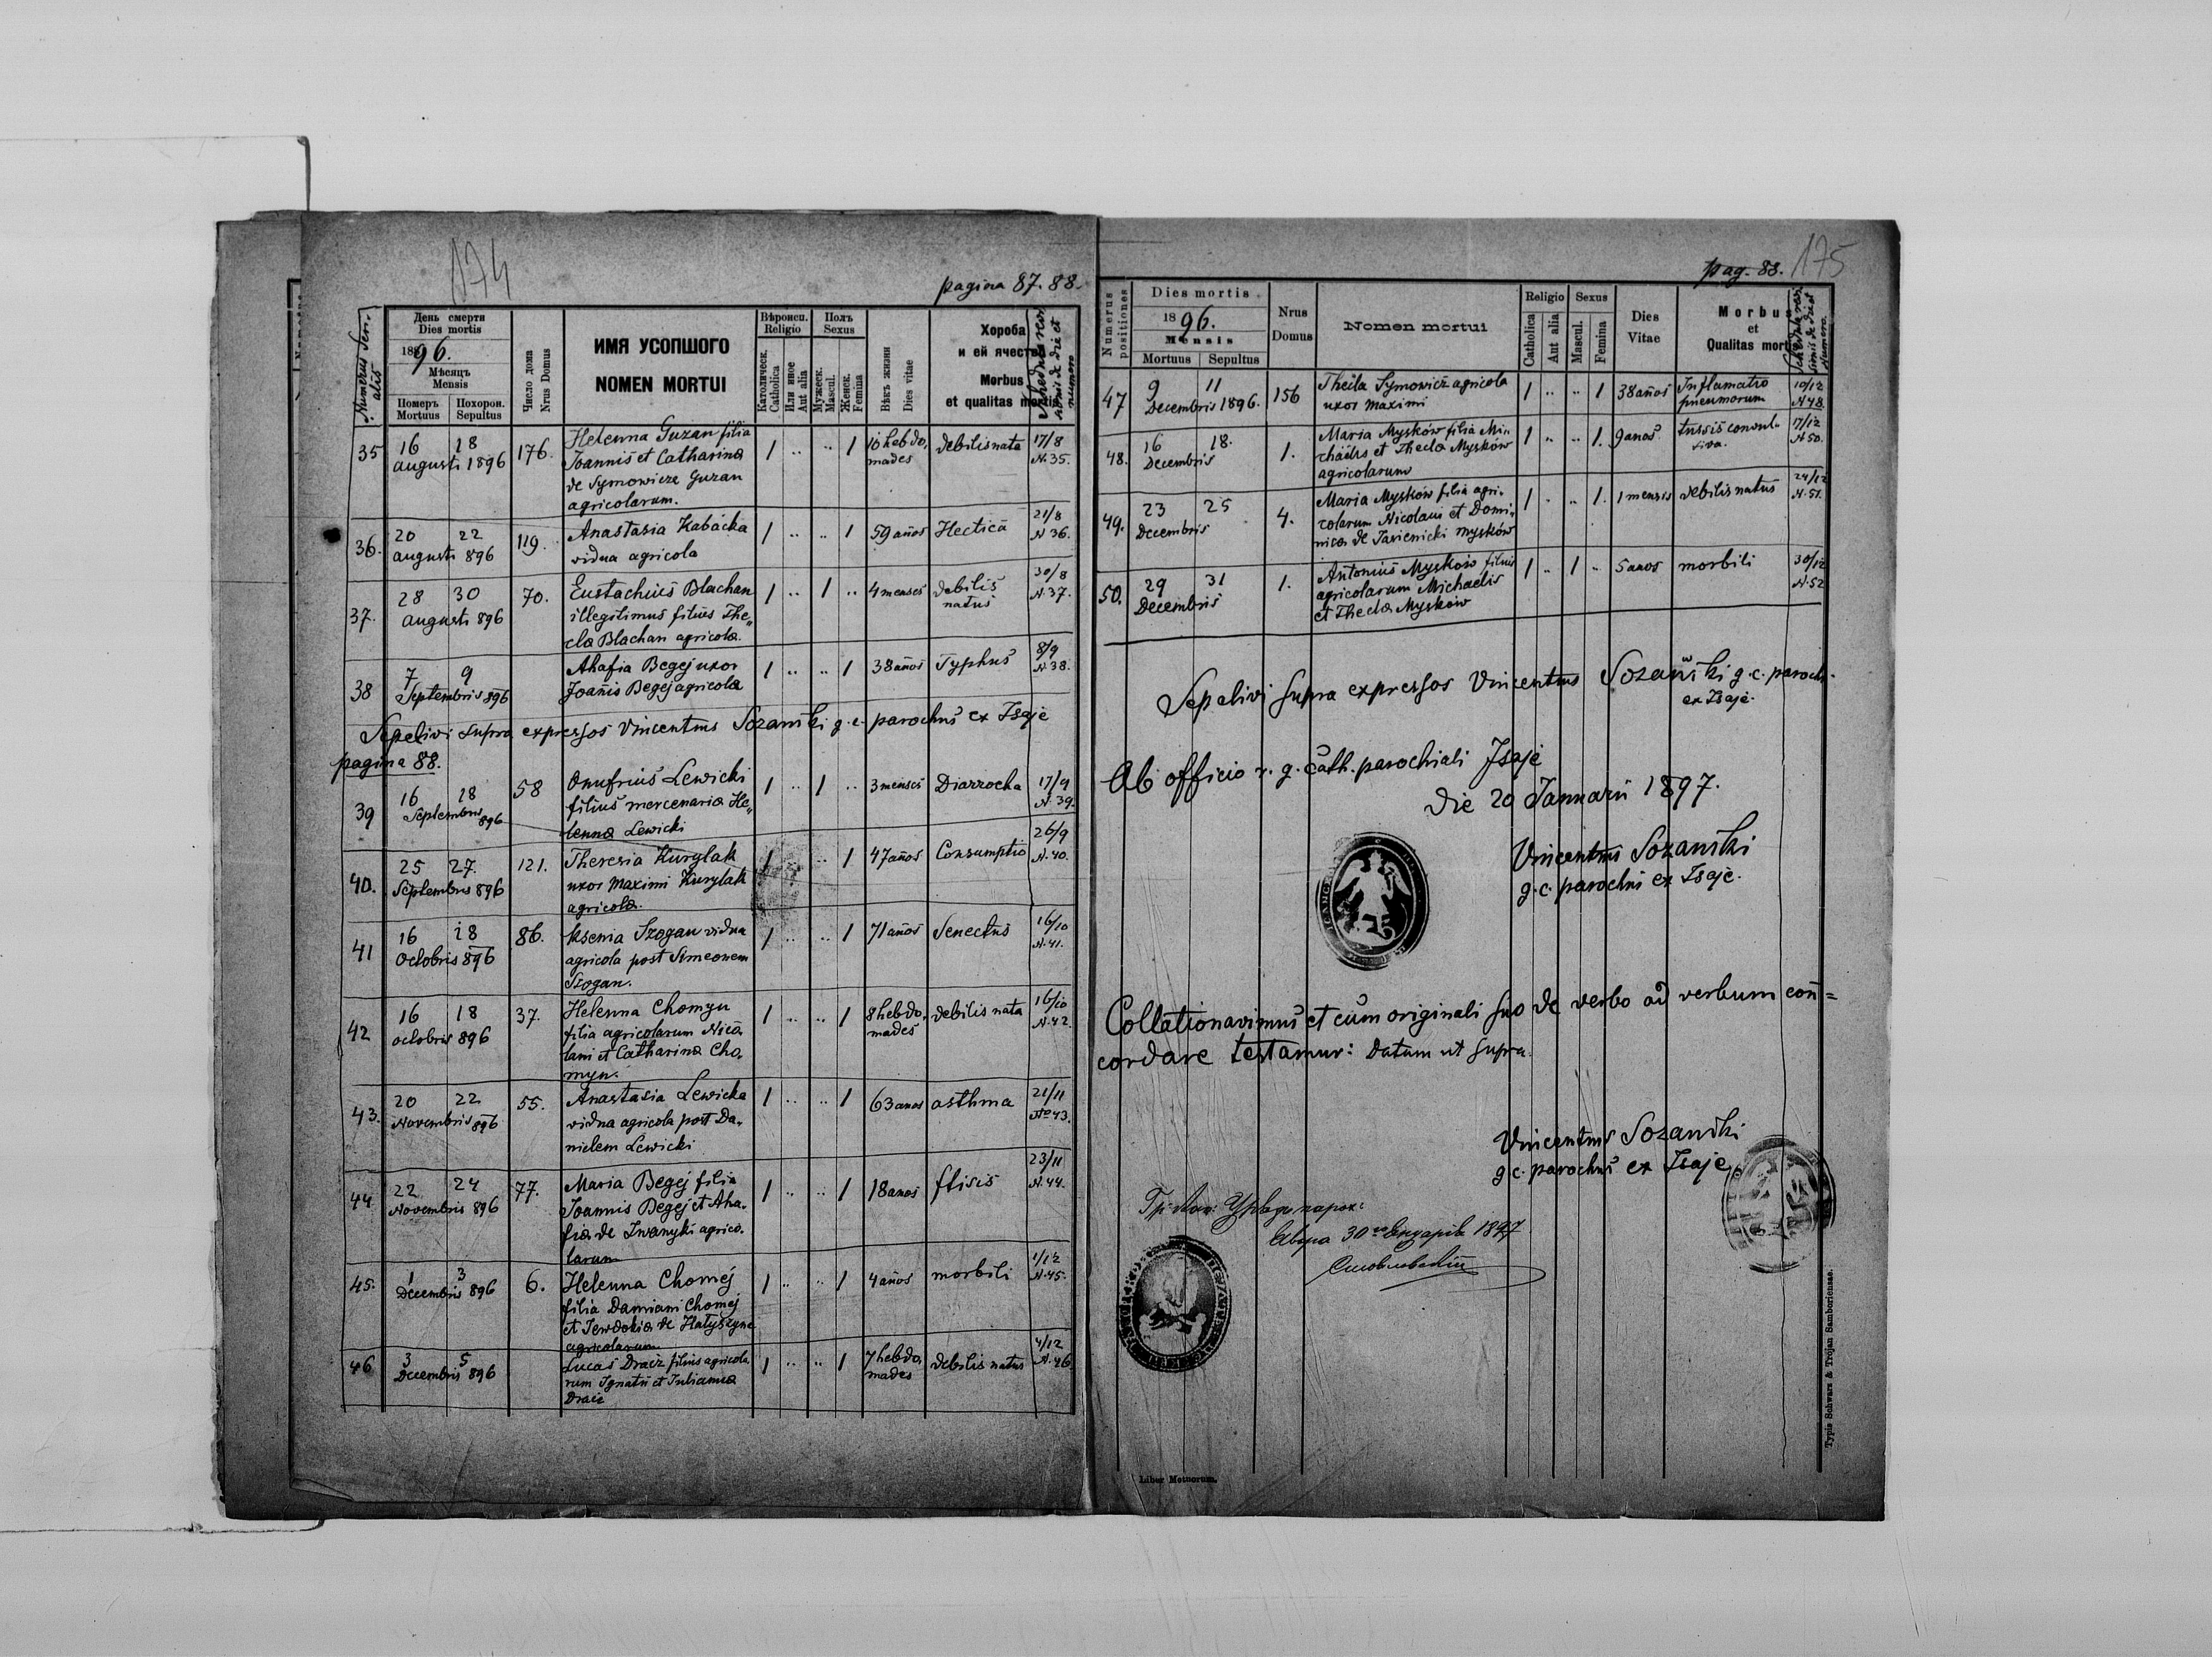 174
pagina 87. 88.
Numerus Seri-
alis
День смерти
Dies mortis
1896.
Мѣсяцъ
Mensis
Померъ
Mortuus
Похорон.
Sepultus
Число дома
Nrus Domus
ИМЯ УСОПШОГО
NOMEN MORTUI
Вѣроисп.
Religio
Католическ.
Catholica
Или иное
Aut alia
Полъ
Sexus
Мужеск.
Mascul.
Женск.
Femina
Вѣкъ жизни
Dies vitae
Хороба
и ей ячество
Morbus
et qualitas mortis
35 16 18 augusti 1896 176. Helenna Guzan filia
Joannis et Catharina
de Symowicze Guzan
agricolarum.
1 .. .. 1 10 hebdo,
mades
debilis nata 17/8
N. 35.
36. 20 22 augusti 896 119. Anastasia Kabacka
vidua agricola
1 .. .. 1 59 anos Hectica 21/8
N 36.
37. 28 30 augusti 896 70. Eustachius Blachan
illegitimus filius The„
cla Blachan agricola.
1 .. 1 .. 4 menses debilis
natus
30/8
N. 37.
38 7 9 Septembris 896 Ahafia Begej uxor
Joanis Begej agricola
1 .. .. 1 38 anos Typhus 8/9
N 38.
Sepelivi supra expressos Vincentius Sozański g. c. parochus ex Isaje
pagina 88.
39 16 18 Septembris 896 58 Onufrius Lewicki
filius mercenaria He„
lenna Lewicki
1 .. 1 .. 3 menses Diarrocha 17/9
N. 39.
40. 25 27. Septembris 896 121. Theresia Kurylak
uxor Maximi Kurylak
agricola.
1 .. .. 1 47 anos Consumptio 26/9
N. 40.
41 16 18 Octobris 896 86. Ksenia Szogan vidua
agricola post Simeonem
Szogan.
1 .. .. 1 71 anos Senectus 16/10
N. 41.
42 16 18 octobris 896 37. Helenna Chomyn
filia agricolarum Nico
lani et Catharina Cho,
myn.
1 .. .. 1 8 hebdo,
mades
debilis nata 16/10
N. 42.
43. 20 22 Novembris 896 55. Anastasia Lewicka
vidua agricola post Da,
nielem Lewicki
1 .. .. 1 63 anos asthma 21/11
No 43.
44 22 24 Novembris 896 77. Maria Begej filia
Joannis Begej et Aha,
fia de Iwanyki agrico.
larum
1 .. .. 1 18 anos ftisis 23/11
N. 44.
45. 1 3 Decembris 896 6. Helenna Chomej
filia Damiani Chomej
et Jewdokia de Hatyszyn
agricolarum
1 .. .. 1 4 anos morbili 1/12
N. 45.
46 3 5 Decembris 896 Lucas Dracz filius agricola,
rum Ignatii et Julianna
Dracz
1 .. .. 1 7 hebdo,
mades
debilis natus 4/12
N. 46
pag. 88. 175
Numerus
positiones
Dies mortis
1896.
Mensis
Mortuus
Sepultus
Nrus
Domus
Nomen mortui
Religio
Catholica
Aut alia
Sexus
Mascul.
Femina
Dies
Vitae
Morbus
et
Qualitas mortis
47 9 11 Decembris 1896. 156 Thecla Symowicz agricola
uxor Maximi
1 .. .. 1 38 anos Inflamatio
pneumorum
10/12
N 48.
48. 16 18. Decembris 1. Maria Mysków filia Mi,
chaelis et Thecla Mysków
agricolarum
1 .. .. 1. 9 anos tussis convul-
siva.
17/12
N 50.
49. 23 25 Decembris 4. Maria Mysków filia agri,
colarum Nicolaus et Domi,
nica de Jasienicki Mysków
1 .. .. 1. 1 mensis debilis natus 24/12
N. 51.
50. 29 31 Decembris 1. Antonius Mysków filius
agricolarum Michaelis
et Thecla Mysków
1 .. 1 .. 5 anos morbili 30/12
N. 52
Sepelivi supra expressos Vincentius Sozański g. c. paroch.
ex Isaje.
Ab officio r. g. cath. parochiali Isaje
die 20 Januarii 1897.
Vincentius Sozański
g. c. parochus ex Isaje.
Collationavimus et cum originali suo de verbo ad verbum con=
cordare testamur: Datum ut supra.
Vincentius Sozański
g. c. parochus ex Isaje
30 1897
Liber Motuorum.
Typis Schwarz & Trojan Samboriensae.